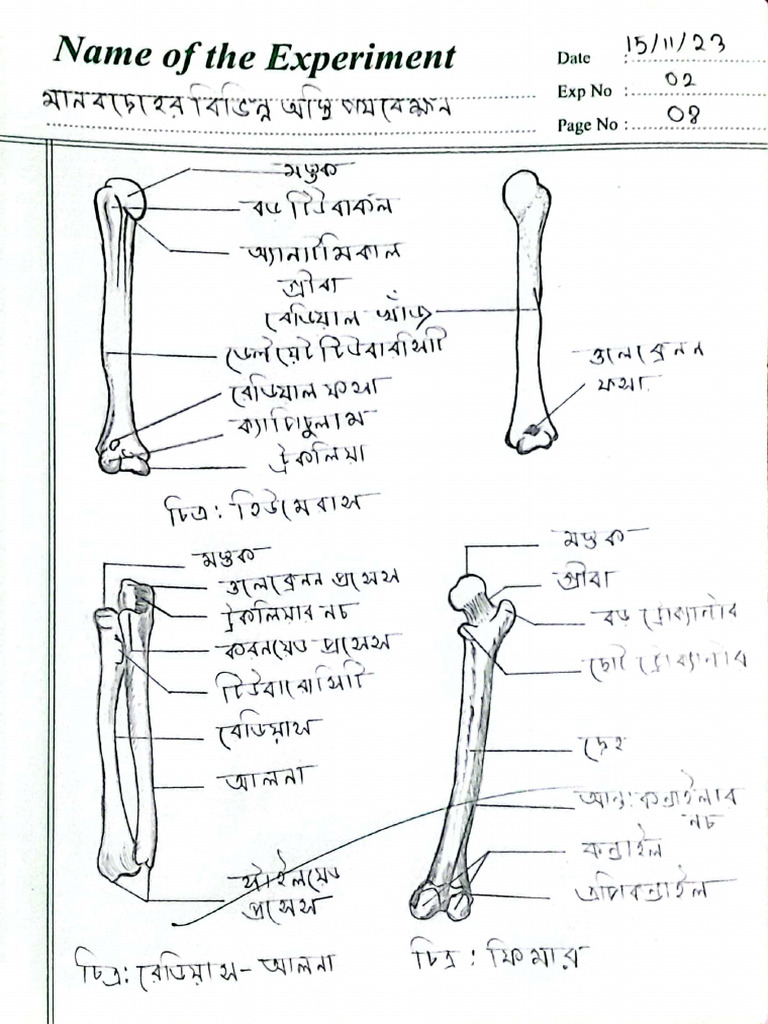 Name of the Experiment
Date 15/11/23
মানবদেহের বিভিন্ন অস্থি পর্যবেক্ষন
Exp No : 02
Page No : 08
মস্তক
বড় টিউবার্কল
অ্যানাটমিকাল
গ্রীবা
রেডিয়াল খাঁজ
ডেলয়েট টিউবারসিটি
ওলেক্রেনন
ফসা
রেডিয়াল ফসা
ক্যাপিচুলাম
ট্রকলিয়া
চিত্র: হিউমেরাস
মস্তক
ওলেক্রেনন প্রসেস
ট্রকলিয়ার নচ
করনয়েড প্রসেস
টিউবারোসিটি
রেডিয়াস
আলনা
স্টাইলয়েড
প্রসেস
চিত্র: রেডিয়াস-আলনা
মস্তক
গ্রীবা
বড় ট্রোক্যান্টার
ছোট ট্রোক্যান্টার
দেহ
আন্তঃকন্ডাইলার
নচ
কন্ডাইল
এপিকন্ডাইল
চিত্র: ফিমার